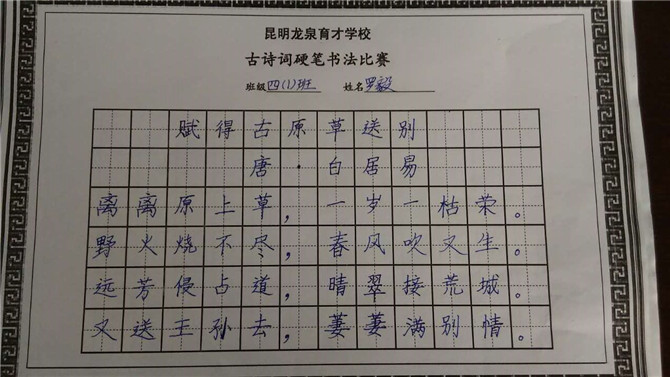 昆明龙泉育才学校
古诗词硬笔书法比赛
班级四(1)班 姓名罗毅
赋得古原草送别
唐·白居易
离离原上草，一岁一枯荣。
野火烧不尽，春风吹又生。
远芳侵占道，晴翠接荒城。
又送王孙去，萋萋满别情。